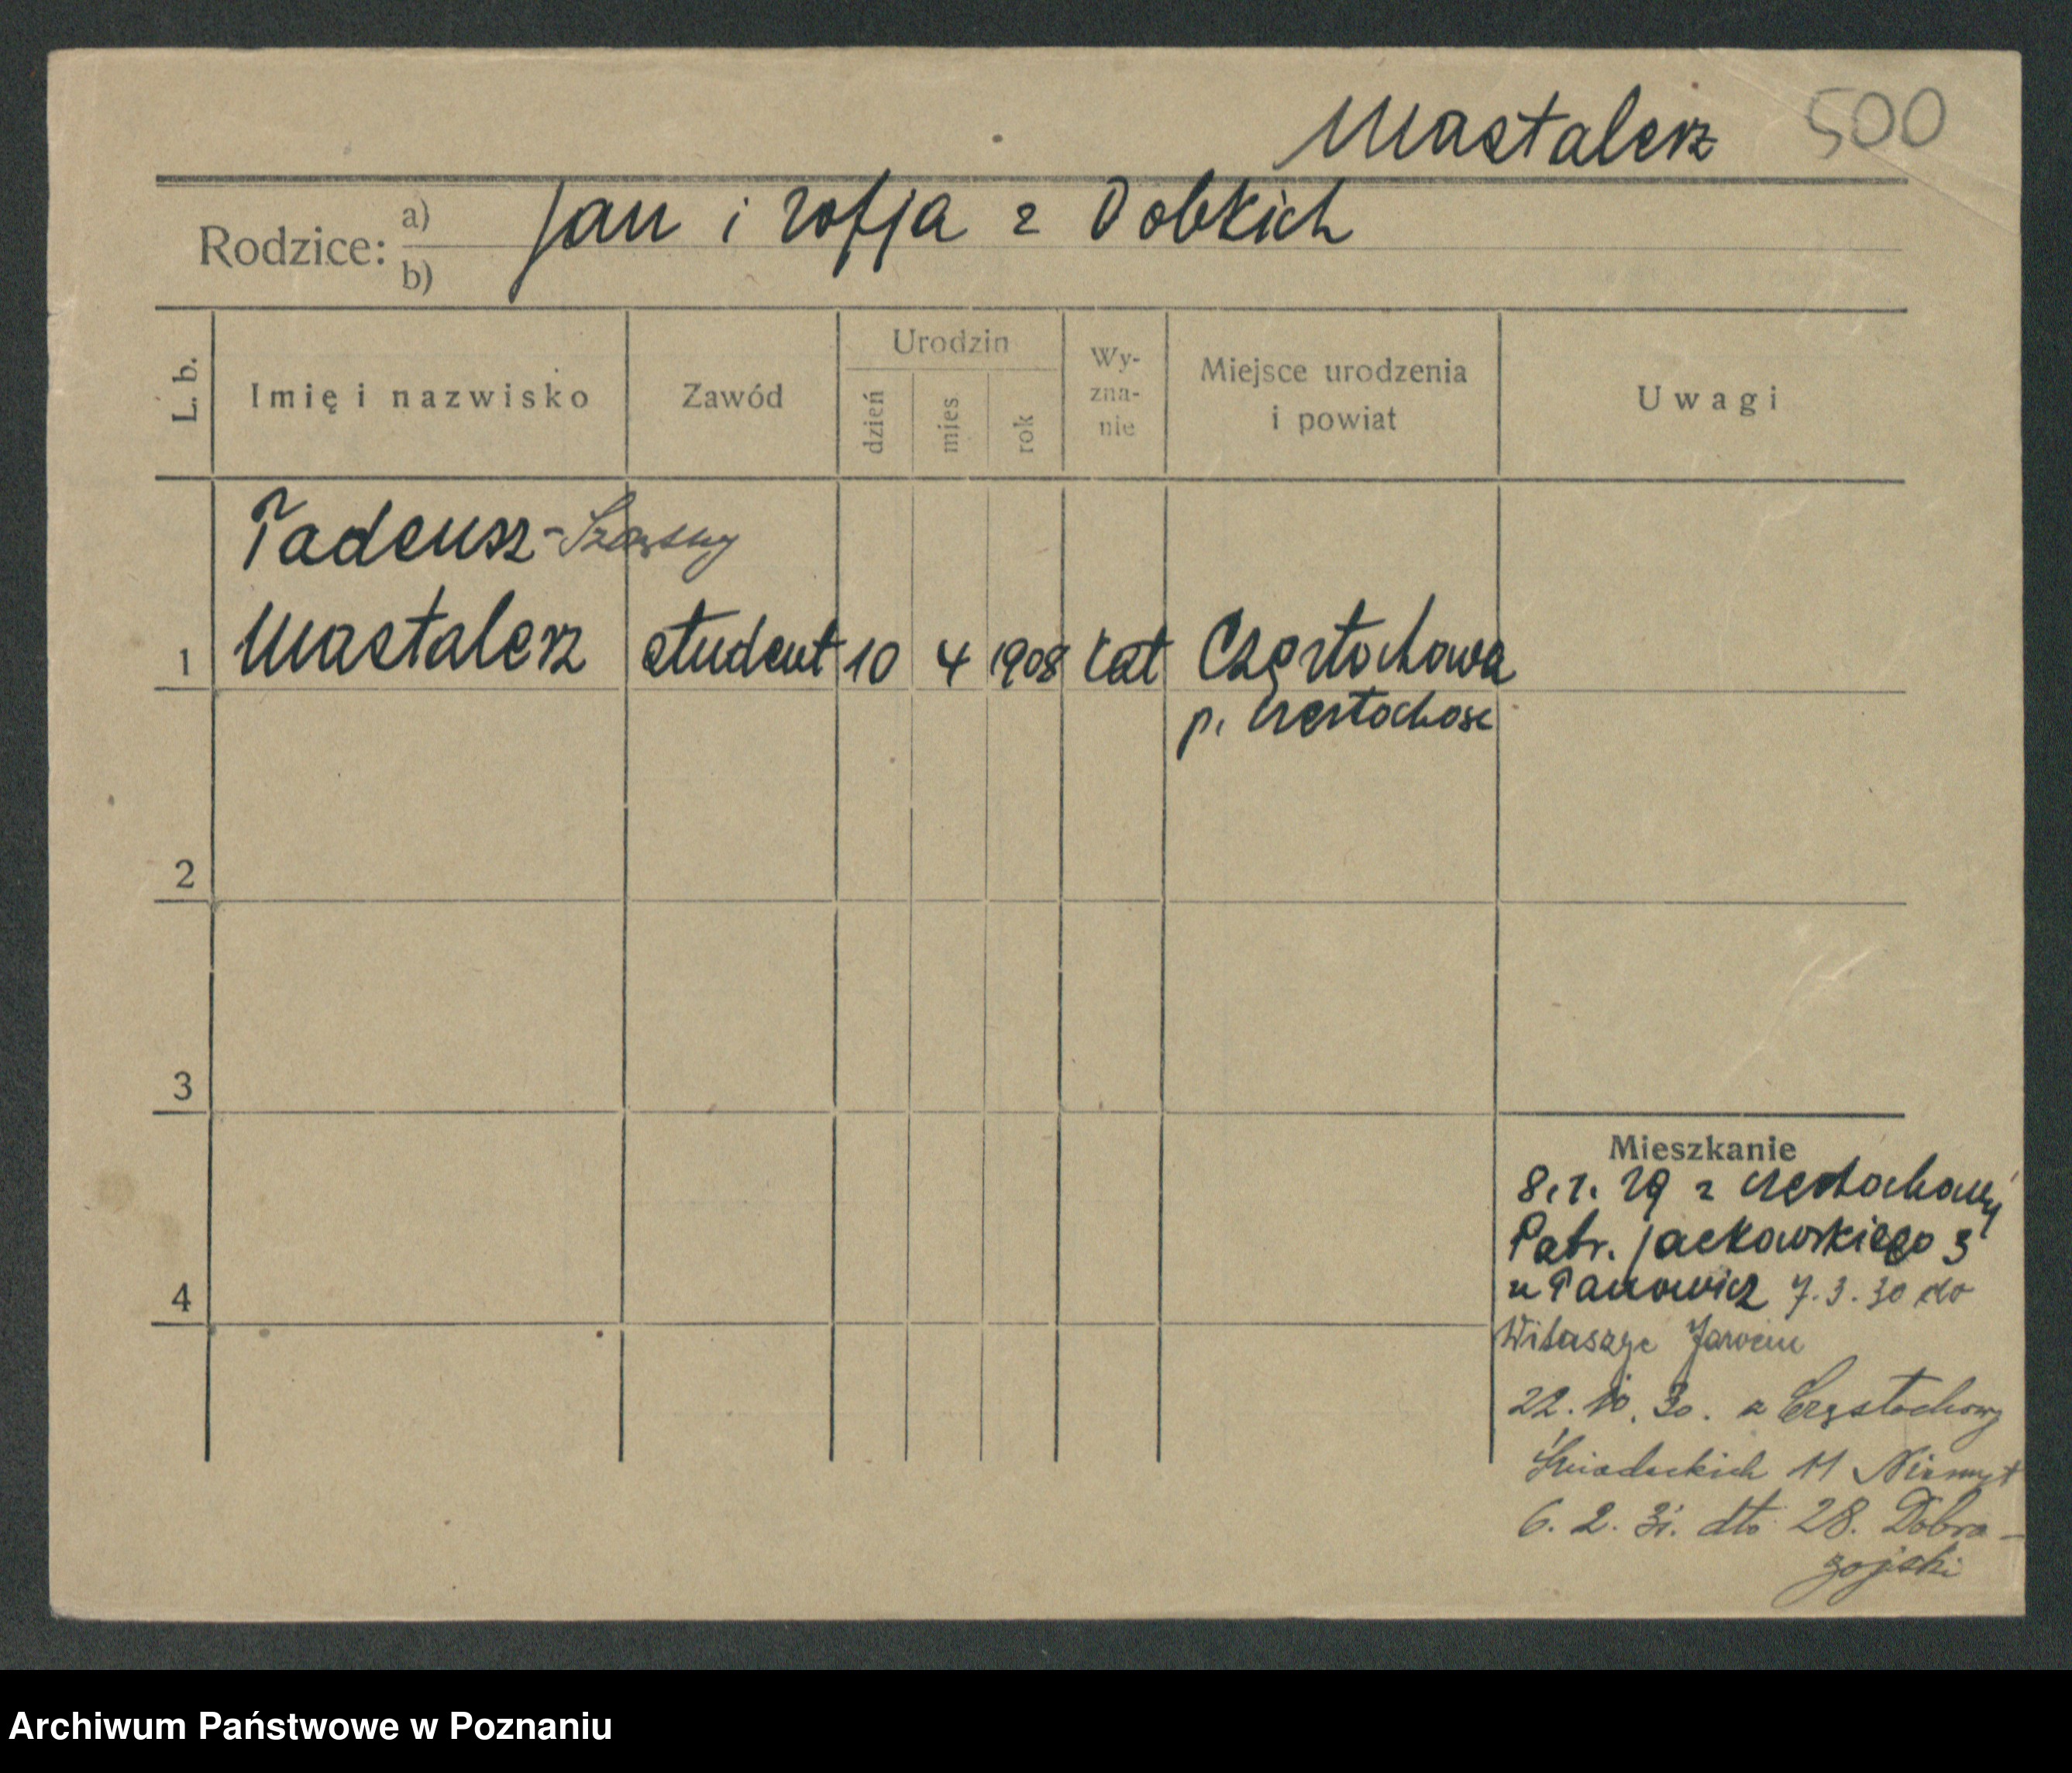 Mastalerz 500
Rodzice: a) Jan i Zofja z Dobkich
b)
L. b. Imię i nazwisko Zawód Urodzin dzień mies rok Wy-zna-nie Miejsce urodzenia i powiat Uwagi
Tadeusz-Szczęsny
1 Mastalerz student 10 4 1908 kat Częstochowa
p.
2
3
Mieszkanie
z Częstochowy
Patr. Jackowskiego 3
u 7.3.30 do
4
Witaszyc Jarocin
22.10.30. z Częstochowy
Śniadeckich 11
6.2.31. dto 28. Dobro-
gojski
Archiwum Państwowe w Poznaniu